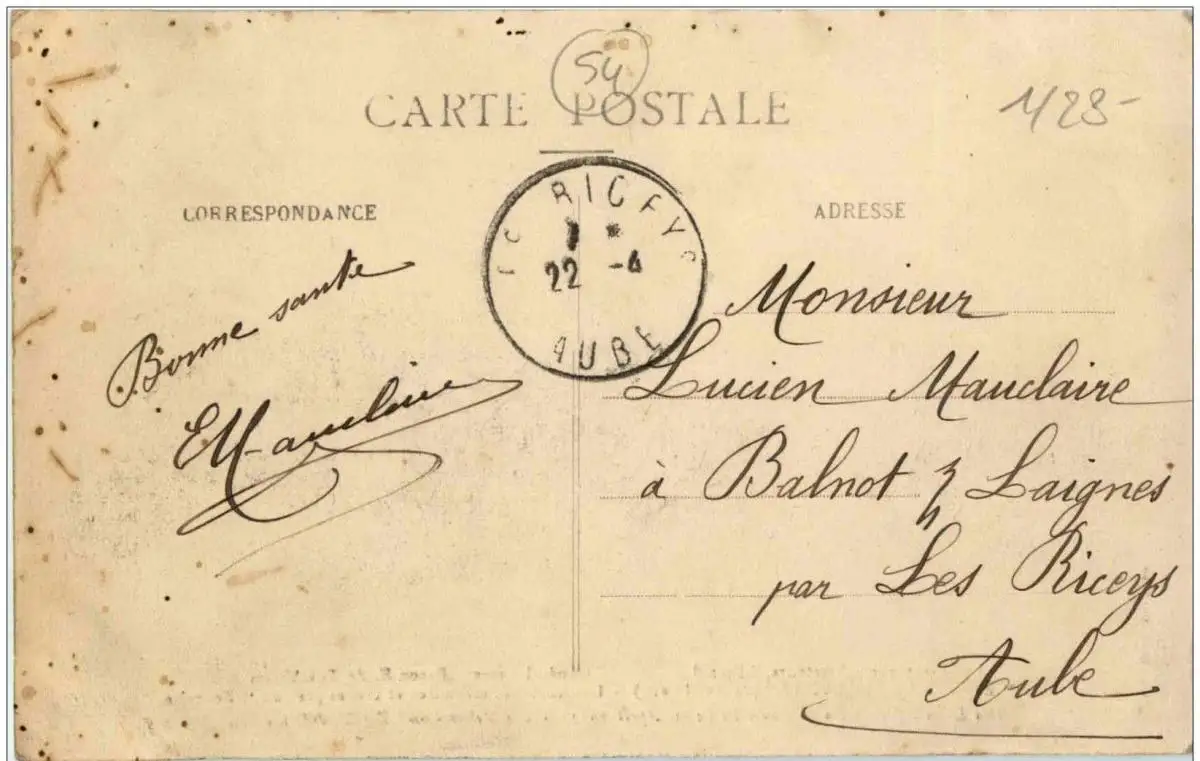 54
CARTE POSTALE
1428-
CORRESPONDANCE
ADRESSE
RICEYS
22 -4
AUBE
Bonne santé
EMauclaire
Monsieur
Lucien Mauclaire
à Balnot s/ Laignes
par Les Riceys
Aube